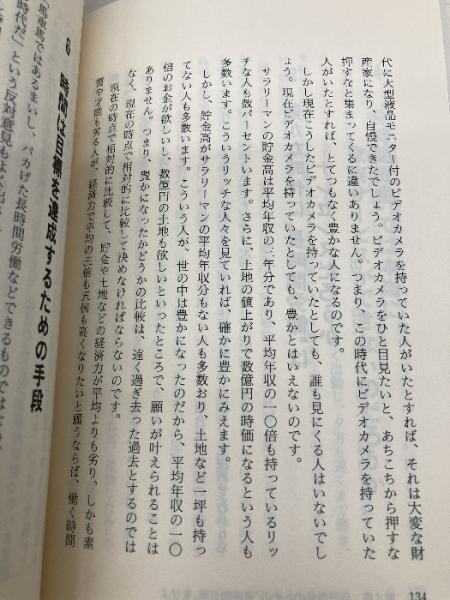 代に大型液晶モニター付のビデオカメラを持っていた人がいたとすれば、それは大変な財
産家になり、自慢できたでしょう。ビデオカメラをひと目見たいと、あちこちから押すな
押すなと集まってくるに違いありません。つまり、この時代にビデオカメラを持っていた
人がいたとすれば、とてつもなく豊かな人になるのです。
しかし現在こうしたビデオカメラを持っていたとしても、誰も見にくる人はいないでし
ょう。現在ビデオカメラを持っていたとしても、豊かとはいえないのです。
サラリーマンの貯金高は平均年収の三年分であり、平均年収の一〇倍も持っているリッ
チな人も数パーセントいます。さらに、土地の値上がりで数億円の時価になるという人も
多数います。こういうリッチな人々を見ていれば、確かに豊かにみえます。
しかし、貯金高がサラリーマンの平均年収分もない人も多数おり、土地など一坪も持っ
てない人も多数います。こういう人が、世の中は豊かになったのだから、平均年収の一〇
倍のお金が欲しいし、数億円の土地も欲しいといったところで、願いが叶えられることは
ありません。つまり、豊かになったかどうかの比較は、遠く過ぎ去った過去とするのでは
なく、現在の時点で相対的に比較して決めなければならないのです。
現在の時点で相対的に比較して、貯金や土地などの経済力が平均よりも劣り、しかも素
質や才能も劣る人が、経済力で平均の三倍も五倍も高くなりたいと願うならば、働く時間
6 時間は目標を達成するための手段
「馬車馬ではあるまいし、バカげた長時間労働などできるものでは
時代だ」という反対意見もよく
134